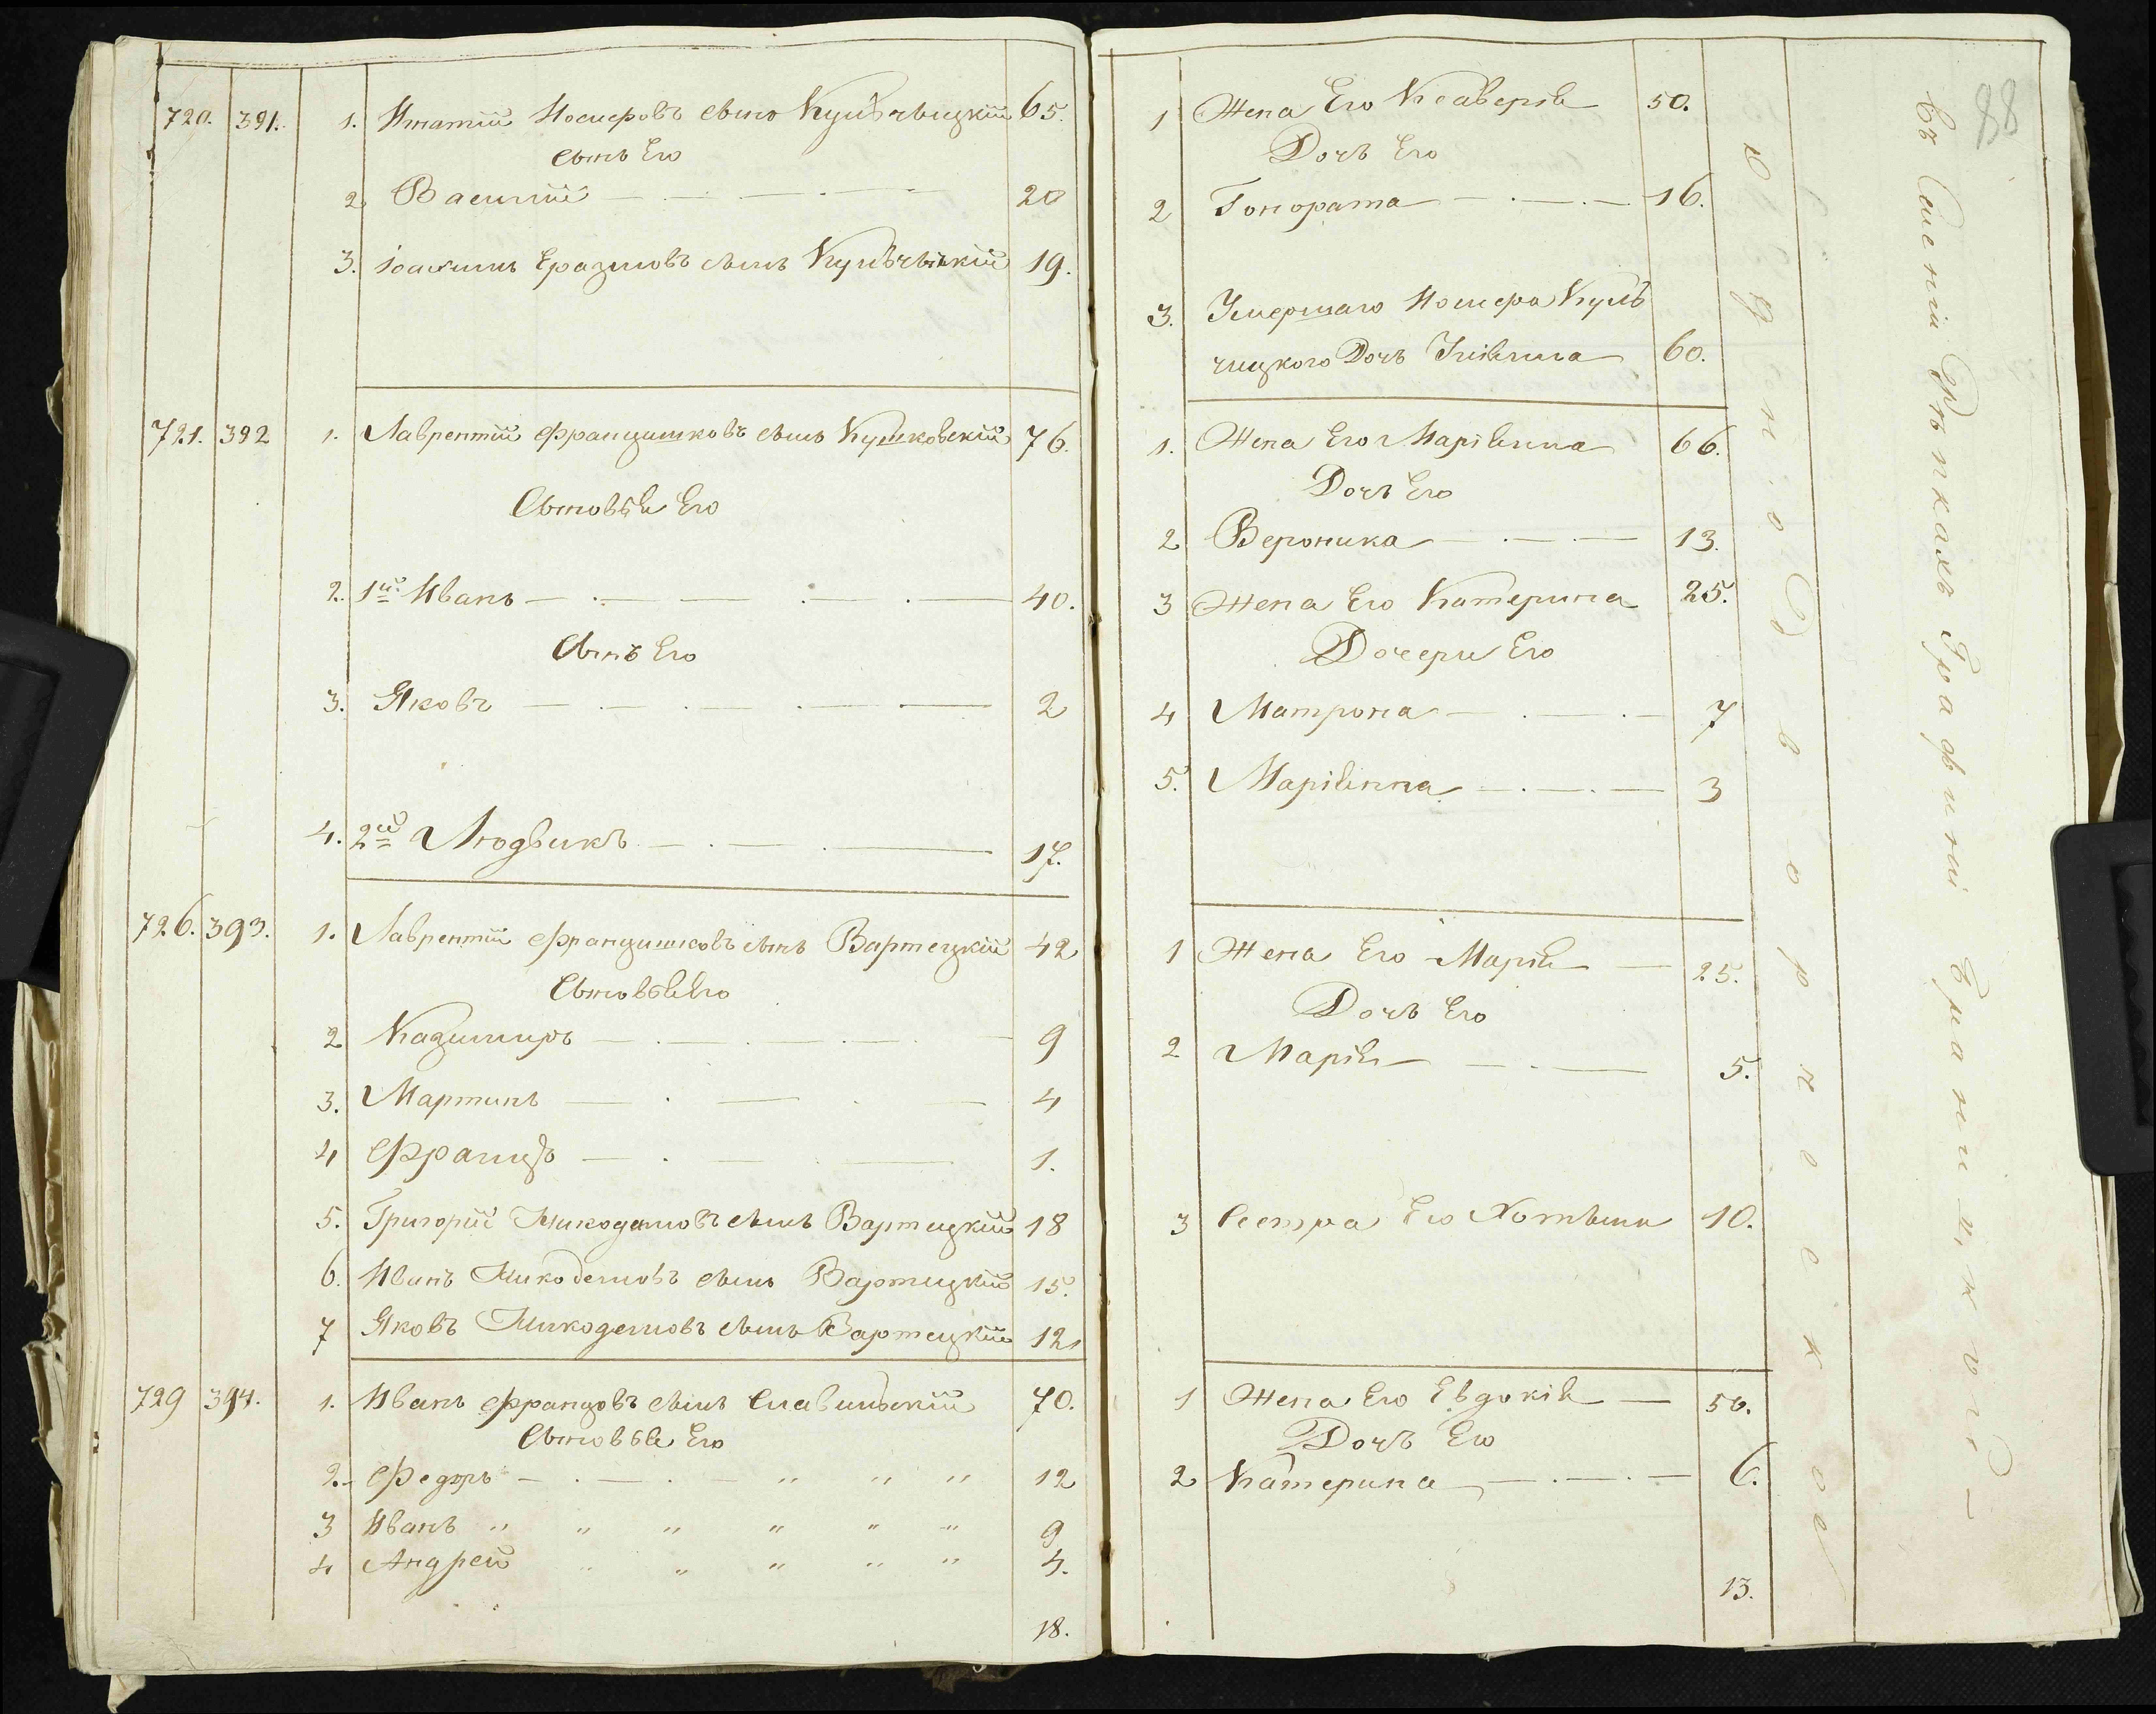 720. 391. 1. Игнатій Іосифовъ сынъ Кульчыцкій 65.
сынъ Его
2 Василій 20
3. Іоакимъ Еразмовъ сынъ Кульчыцкій 19.
721. 392 1. Лаврентій Францишковъ сынъ Кушковскій 76.
Сыновья Его
2. 1й Иванъ 40.
Сынъ Его
3. Яковъ 2
4. 2й Людвикъ 17.
726. 393. 1. Лаврентій Францишковъ сынъ Вартецкій 42
Сыновья Его
2 Казимиръ 9
3. Мартинъ 4
4 Францъ 1.
5. Григорій Никодемовъ сынъ Вартецкій 18
6. Иванъ Никодемовъ сынъ Вартецкій 15.
7 Яковъ Никодемовъ сынъ Вартецкій 12
729 394. 1. Иванъ Францовъ сынъ Славинскій 70.
Сыновья Его
2. Федоръ 12
3 Иванъ 9
4 Андрей 4.
18.
88
1 Жена Его Ксаверія 50.
Дочь Его
2 Гонората 16.
3. Умершаго Іосифа Куль
чицкого Дочь 60.
1. Жена Его Маріянна 66.
Дочь Его
2 Вероника 13.
3 Жена Его Катерина 25.
Дочери Его
4 Матрона 7
5. Маріянна 3
1 Жена Его Марія 25.
Дочь Его
2 Марія 5.
3 Сестра Его 10.
1 Жена Его Евдокія 50.
Дочь Его
2 Катерина 6.
13.
Однодворческое
въ Графини Браницкой